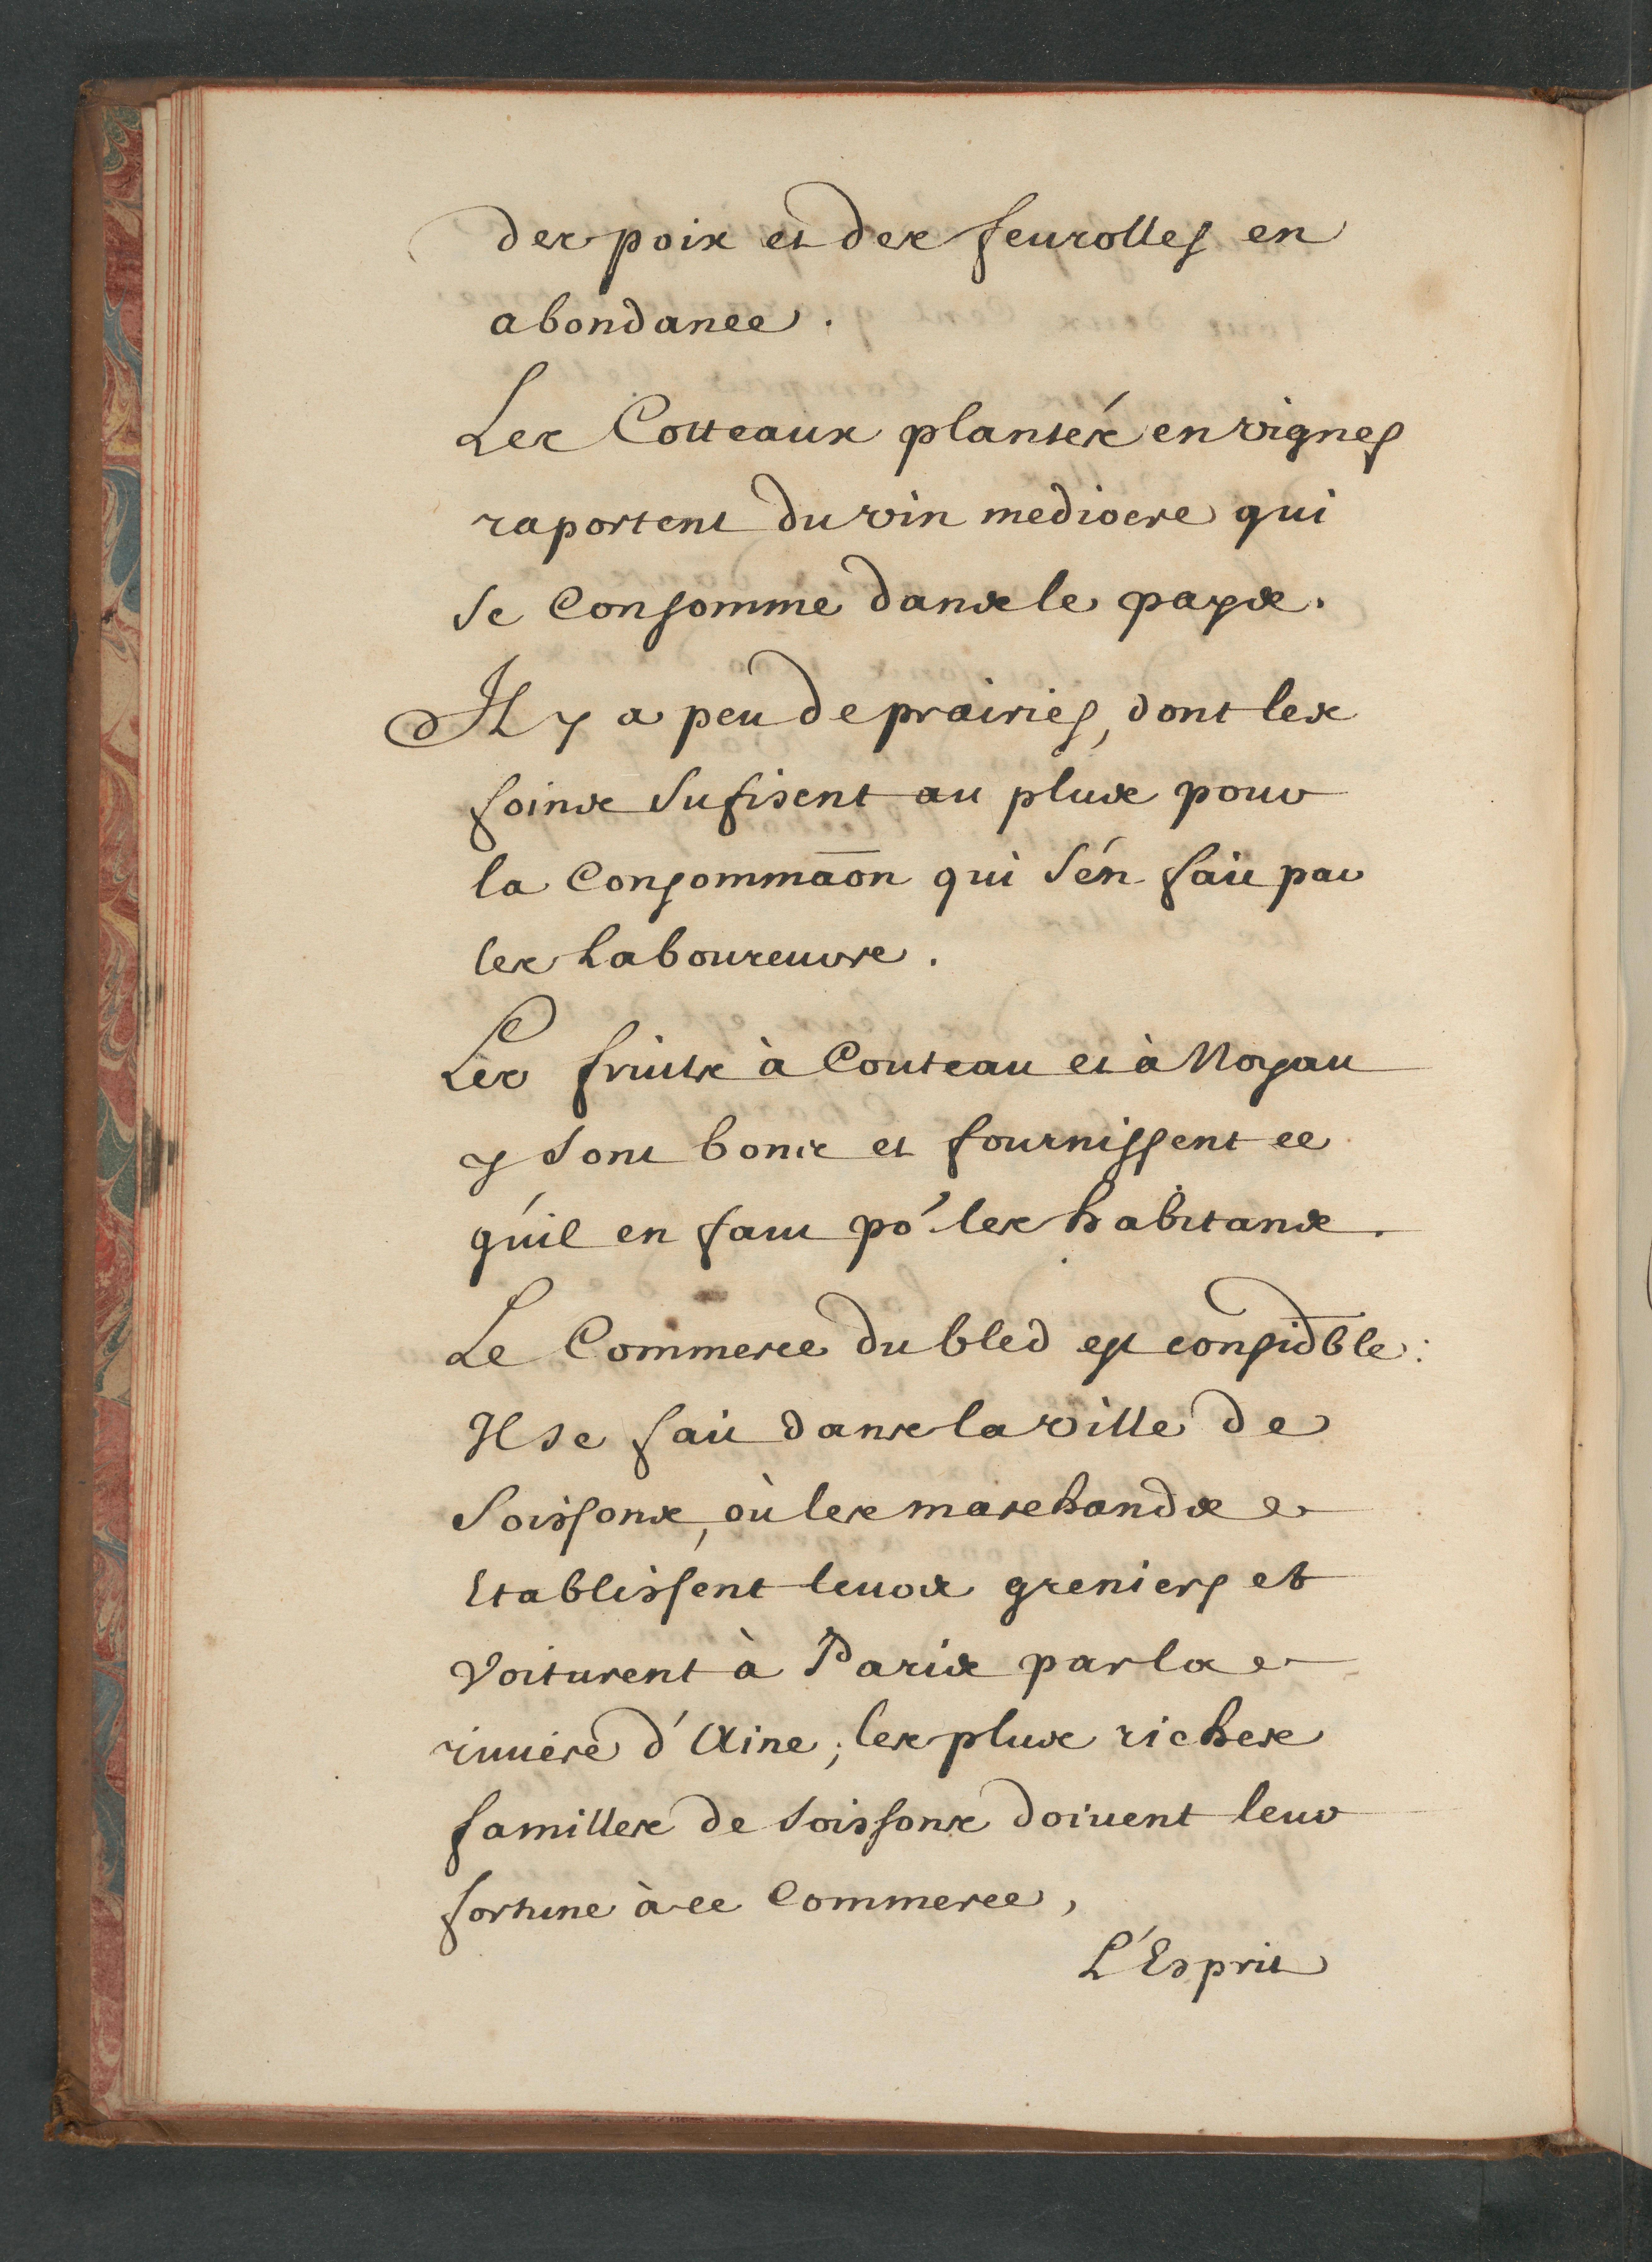 des pois et des feurolles en
abondance.
Les Cotteaux plantés en vignes
raportent du vin mediocre qui
se Consomme dans le pays.
Il y a peu de prairies, dont les
foins sufisent au plus pour
la Consommãon qui s'én fait par
les Laboureurs.
Les fruits à Couteau et à Noyau
y sont bons et fournissent ce
qu'il en faut po^r les habitans.
Le Commerce du bled est consid̄ble:
Il se fait dans la ville de
Soissons, où les marchands
Etablissent leurs greniers et
Voiturent à Paris par la
riuiere d'Aine; les plus riches
familles de Soissons doiuent leur
fortune à ce Commerce,
L'Esprit